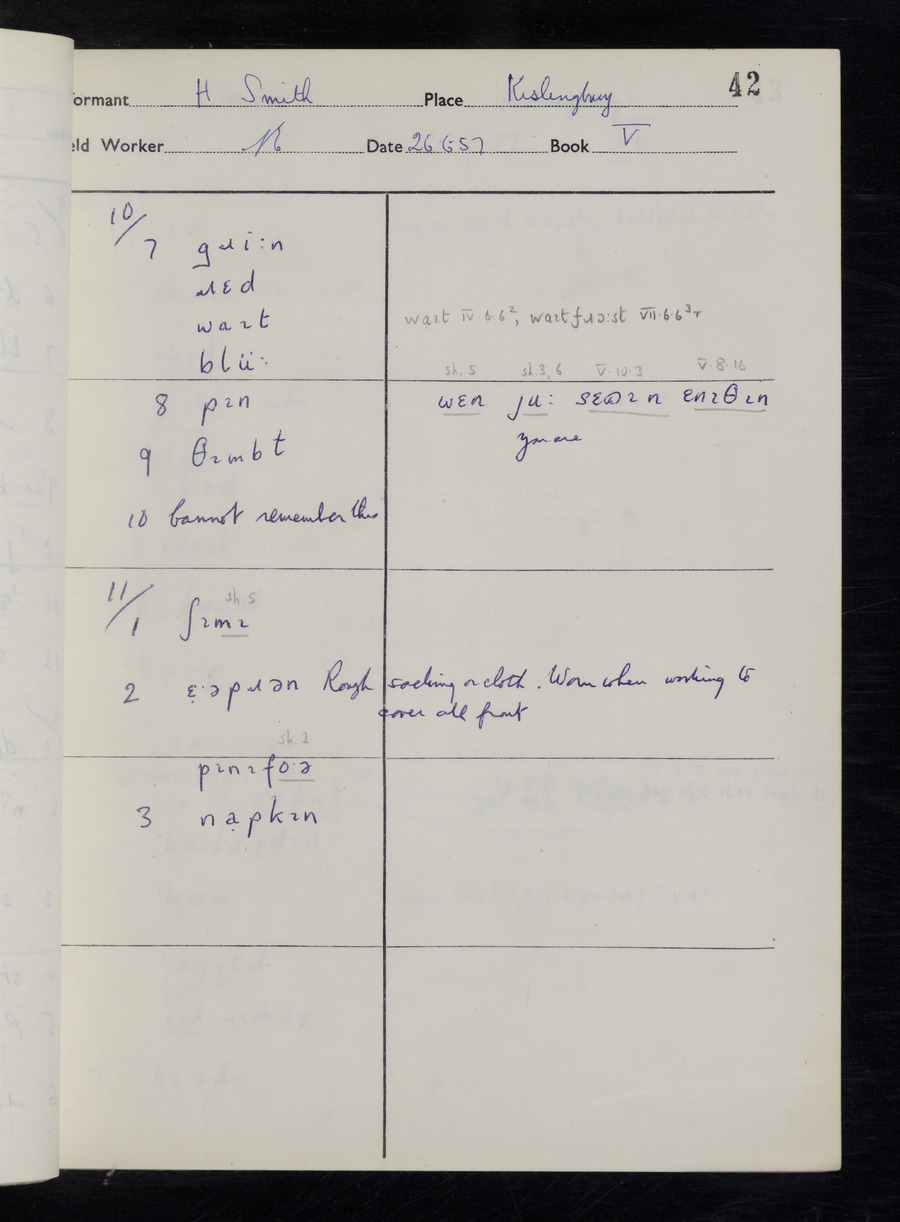 42
formant H Smith Place Kislingbury
eld Worker Date 26.6.57 Book V
10/
7 gɹiːn
ɹɛd
waɪt
blüː
waɪt IV.6.6², waɪtfɹɔːst VII.6.6³r
sh. 5 sh.3, 6 V.10.3 V.8.16
8 pɪn
wɛn juː sɛωɪn ɛnɪθɪn
9 θɪmbt
you are
10 Cannot remember this
11/
sh. 5
1 ʃɪmɪ
2 ɛ̣·əpɹən Rough sacking or cloth. Worn when working to
cover all front
sh. 1
pɪnɪfɔ·ə
3 nạpkɪn